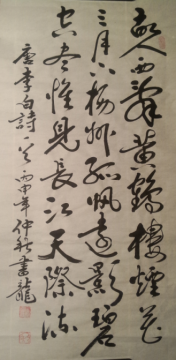 故人西辭黄鶴樓煙花
三月下揚州孤帆遠影碧
空盡惟見長江天際流
唐李白詩一首丙申年仲秋書龍